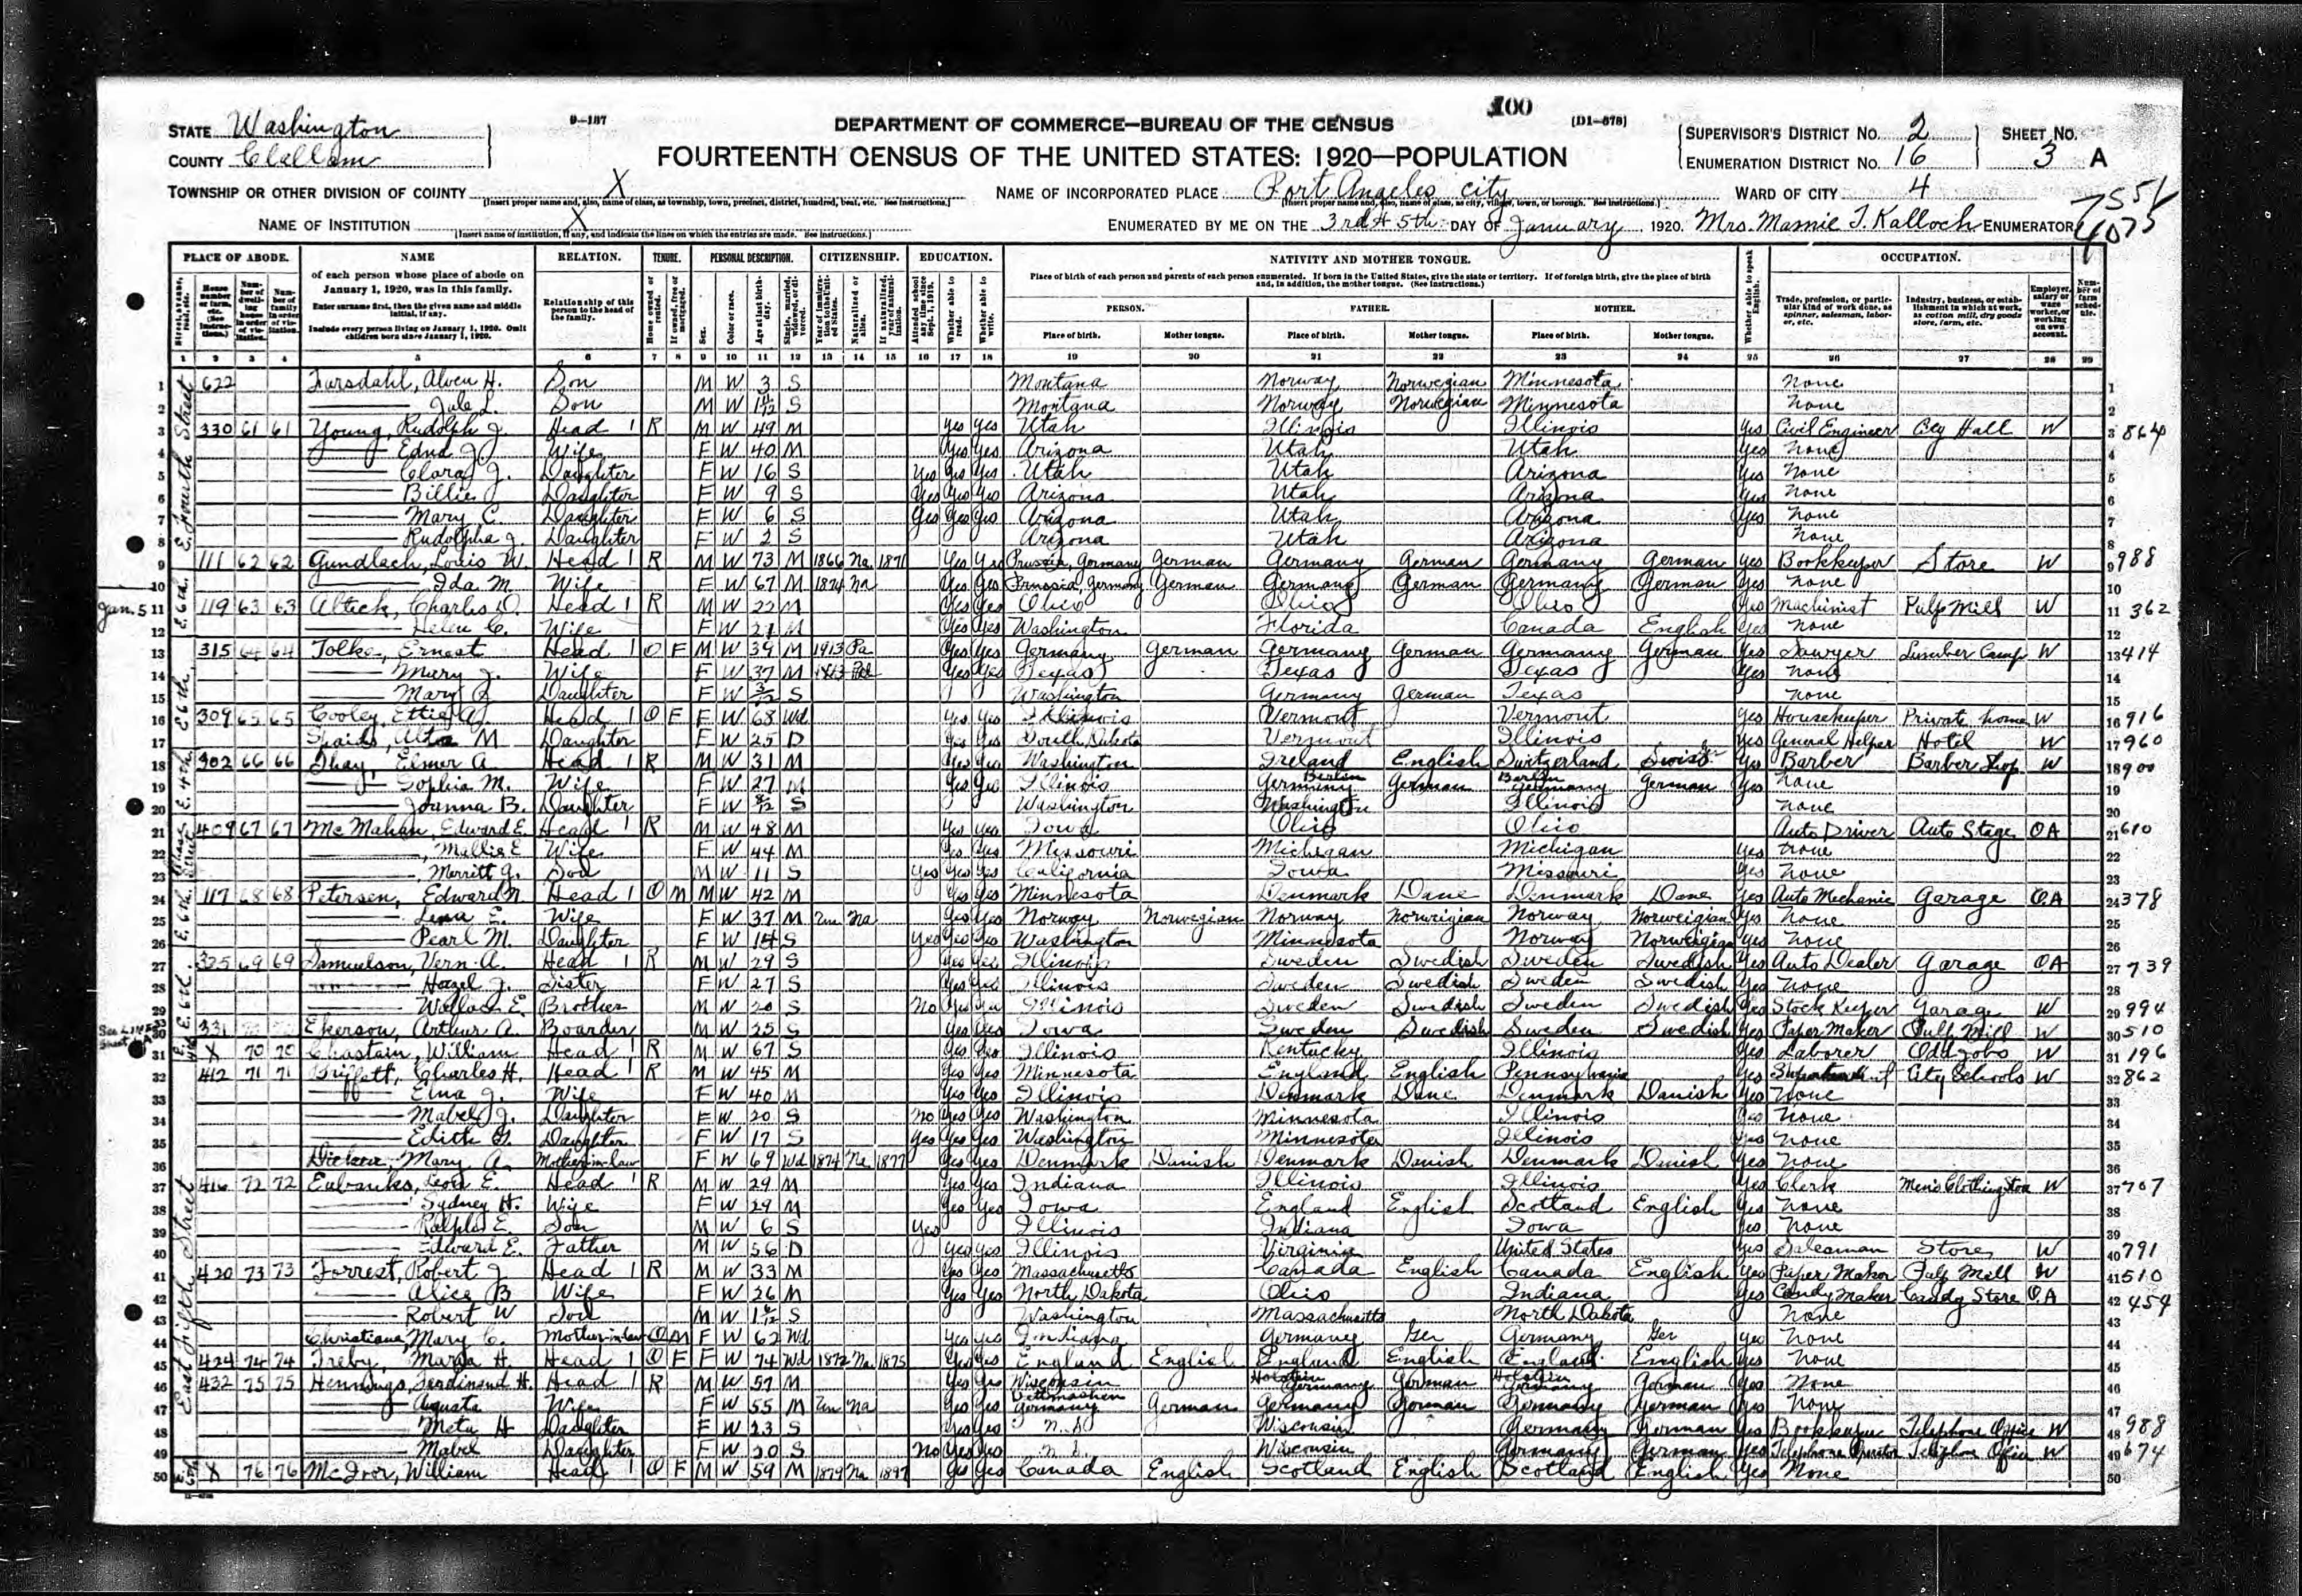 100
9-137
[D1-878]
STATE Washington
COUNTY Clallam
DEPARTMENT OF COMMERCE—BUREAU OF THE CENSUS
FOURTEENTH CENSUS OF THE UNITED STATES: 1920—POPULATION
SUPERVISOR'S DISTRICT No. 2
ENUMERATION DISTRICT No. 16
SHEET No. 3 A
TOWNSHIP OR OTHER DIVISION OF COUNTY X
NAME OF INCORPORATED PLACE Port Angeles city
WARD OF CITY 4
NAME OF INSTITUTION X
ENUMERATED BY ME ON THE 3rd & 5th DAY OF January, 1920. Mrs. Mamie T. Kalloch ENUMERATOR
PLACE OF ABODE. NAME RELATION. TENURE. PERSONAL DESCRIPTION. CITIZENSHIP. EDUCATION. NATIVITY AND MOTHER TONGUE. OCCUPATION.
of each person whose place of abode on January 1, 1920, was in this family.
Enter surname first, then the given name and middle initial, if any.
Include every person living on January 1, 1920. Omit children born since January 1, 1920.
Relationship of this person to the head of the family.
Place of birth of each person and parents of each person enumerated. If born in the United States, give the state or territory. If of foreign birth, give the place of birth and, in addition, the mother tongue. (See Instructions.)
PERSON. FATHER. MOTHER.
Place of birth. Mother tongue. Place of birth. Mother tongue. Place of birth. Mother tongue.
1 2 3 4 5 6 7 8 9 10 11 12 13 14 15 16 17 18 19 20 21 22 23 24 25 26 27 28 29
1 622 Son M W 3 S Montana Norway Norwegian Minnesota None
2 Son M W 1 11/12 S Montana Norway Norwegian Minnesota None
3 330 61 61 Young, Rudolph J. Head 1 R M W 49 M Yes Yes Utah Illinois Illinois Yes Civil Engineer City Hall W 864
4 Edna J. Wife F W 40 M Yes Yes Arizona Utah Utah Yes None
5 Clara J. Daughter F W 16 S Yes Yes Yes Utah Utah Arizona Yes None
6 Billie Daughter F W 9 S Yes Yes Yes Arizona Utah Arizona Yes None
7 Mary C. Daughter F W 6 S Yes Yes Yes Arizona Utah Arizona Yes None
8 Rudolpha J. Daughter F W 2 S Arizona Utah Arizona None
9 111 62 62 Gundlach, Louis W. Head 1 R M W 73 M 1866 Na 1871 Yes Yes Prussia, Germany German Germany German Germany German Yes Bookkeeper Store W 988
10 Ida M. Wife F W 67 M 1874 Na Yes Yes Prussia, Germany German Germany German Germany German Yes None
Jan. 5 11 119 63 63 Altick, Charles D. Head 1 R M W 22 M Yes Yes Ohio Ohio Ohio Yes Machinist Pulp Mill W 362
12 Helen C. Wife F W 21 M Yes Yes Washington Florida Canada English Yes None
13 315 64 64 Tolke, Ernest Head 1 O F M W 39 M 1913 Pa Yes Yes Germany German Germany German Germany German Yes Sawyer Lumber Camp W 414
14 Mary J. Wife F W 37 M 1913 Yes Yes Texas Texas Texas Yes None
15 Mary J. Daughter F W 3/12 S Washington Germany German Texas None
16 309 65 65 Cooley, Ettie A. Head 1 O F F W 68 Wd Yes Yes Illinois Vermont Vermont Yes Housekeeper Private home W 916
17 Alta M Daughter F W 25 D Yes Yes South Dakota Vermont Illinois Yes General Helper Hotel W 960
18 302 66 66 Elmer A. Head 1 R M W 31 M Yes Yes Washington Ireland English Switzerland Swiss Yes Barber Barber Shop W 900
19 Sophia M. Wife F W 27 M Yes Yes Illinois Berlin Germany German Berlin Germany German Yes None
20 Joanna B. Daughter F W S Washington Washington Illinois None
21 409 67 67 McMahan, Edward E. Head 1 R M W 48 M Yes Yes Iowa Ohio Ohio Auto Driver Auto Stage OA 610
22 Mallie E Wife F W 44 M Yes Yes Missouri Michigan Michigan Yes None
23 Merritt J. Son M W 11 S Yes Yes Yes California Iowa Missouri Yes None
24 117 68 68 Petersen, Edward N. Head 1 O M M W 42 M Yes Yes Minnesota Denmark Dane Denmark Dane Yes Auto Mechanic Garage OA 378
25 Lena E. Wife F W 37 M Un Na Yes Yes Norway Norwegian Norway Norweigian Norway Norweigian Yes None
26 Pearl M. Daughter F W 14 S Yes Yes Yes Washington Minnesota Norway Norweigian Yes None
27 325 69 69 Samuelson, Vern A. Head 1 R M W 29 S Yes Yes Illinois Sweden Swedish Sweden Swedish Yes Auto Dealer Garage OA 739
28 Hazel J. Sister F W 27 S Yes Yes Illinois Sweden Swedish Sweden Swedish Yes None
29 Wallace E. Brother M W 20 S No Yes Yes Illinois Sweden Swedish Sweden Swedish Yes Stock Keeper Garage W 994
30 331 Ekerson, Arthur A. Boarder M W 25 S Yes Yes Iowa Sweden Swedish Sweden Swedish Yes Paper Maker Pulp Mill W 510
31 X 70 70 Chastain, William Head 1 R M W 67 S Yes Yes Illinois Kentucky Illinois Yes Laborer Odd jobs W 196
32 412 71 71 Charles H. Head 1 R M W 45 M Yes Yes Minnesota England English Pennsylvania Yes City Schools W 862
33 Wife F W 40 M Yes Yes Illinois Denmark Dane Denmark Danish Yes None
34 Mabel J. Daughter F W 20 S No Yes Yes Washington Minnesota Illinois Yes None
35 Edith Daughter F W 17 S Yes Yes Yes Washington Minnesota Illinois Yes None
36 Mary A. Mother-in-law F W 69 Wd 1874 Na 1877 Yes Yes Denmark Danish Denmark Danish Denmark Danish Yes None
37 416 72 72 Eubanks, Leon E. Head 1 R M W 29 M Yes Yes Indiana Illinois Illinois Yes Clerk W 707
38 Sydney H. Wife F W 29 M Yes Yes Iowa England English Scotland English Yes None
39 Ralph E. Son M W 6 S Yes Illinois Indiana Iowa Yes None
40 Edward E. Father M W 56 D Yes Yes Illinois Virginia United States Yes Salesman Store W 791
41 420 73 73 Forrest, Robert J Head 1 R M W 33 M Yes Yes Massachusetts Canada English Canada English Yes Paper Maker Pulp Mill W 510
42 Alice B Wife F W 26 M Yes Yes North Dakota Ohio Indiana Yes Candy Maker Candy Store OA 454
43 Robert W Son M W S Washington Massachusetts North Dakota None
44 Christiana, Mary C. Mother-in-law O M F W 62 Wd Yes Yes Indiana Germany Ger Germany Ger Yes None
45 424 74 74 Treby, Maria H. Head 1 O F F W 74 Wd 1872 Na 1875 Yes Yes England English England English England English Yes None
46 432 75 75 Hennings, Ferdinand H. Head 1 R M W 57 M Yes Yes Wisconsin Holstein Germany German Holstein Germany German Yes None
47 Augusta Wife F W 55 M Un Na Yes Yes Germany German Germany German Germany German Yes None
48 Meta H Daughter F W 23 S Yes Yes Wisconsin Germany German Yes Bookkeeper Telephone Office W 988
49 Mabel Daughter F W 20 S No Yes Yes Wisconsin Germany German Yes Telephone Operator Telephone Office W 674
50 X 76 76 McIvor, William Head 1 O F M W 59 M 1879 Na 1897 Yes Yes Canada English Scotland English Scotland English Yes None
E. Fourth Street
East Fifth Street